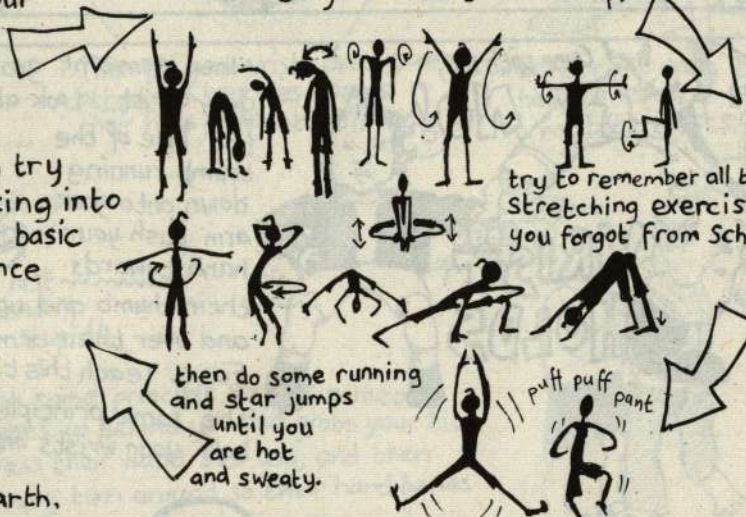 try
basic
nce
try to remember all t
stretching exercis
you forgot from Sch
then do some running
and star jumps
until you
are hot
and sweaty.
puff puff
pant
arth.